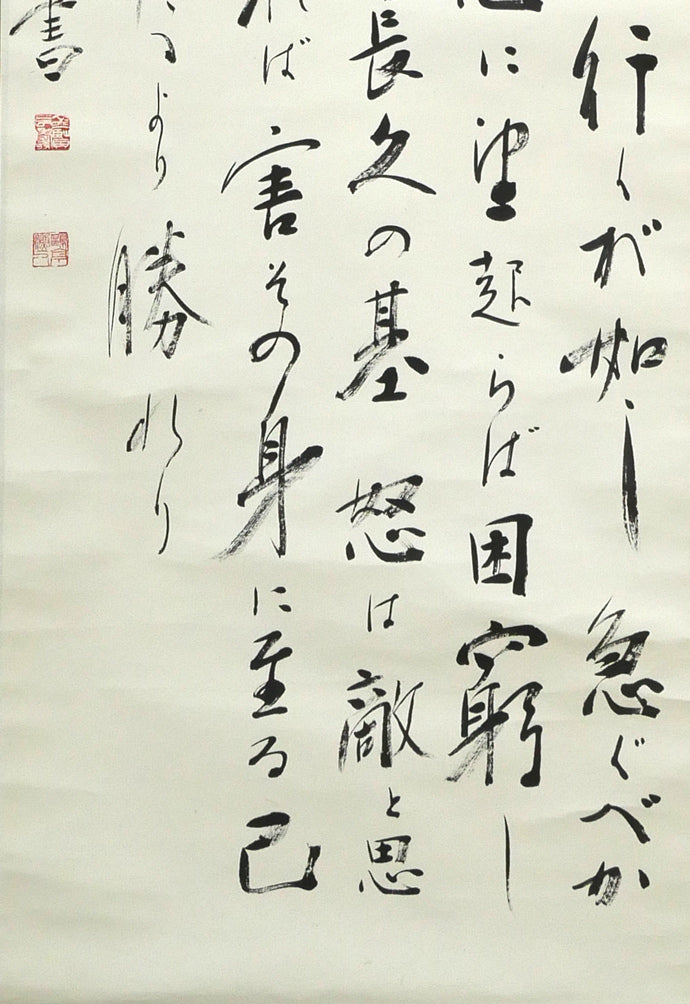 行くが如し 急ぐべか
に望起らば困窮し
長久の基 怒は敵と思
れば害その身に至る己
るより勝れり
書